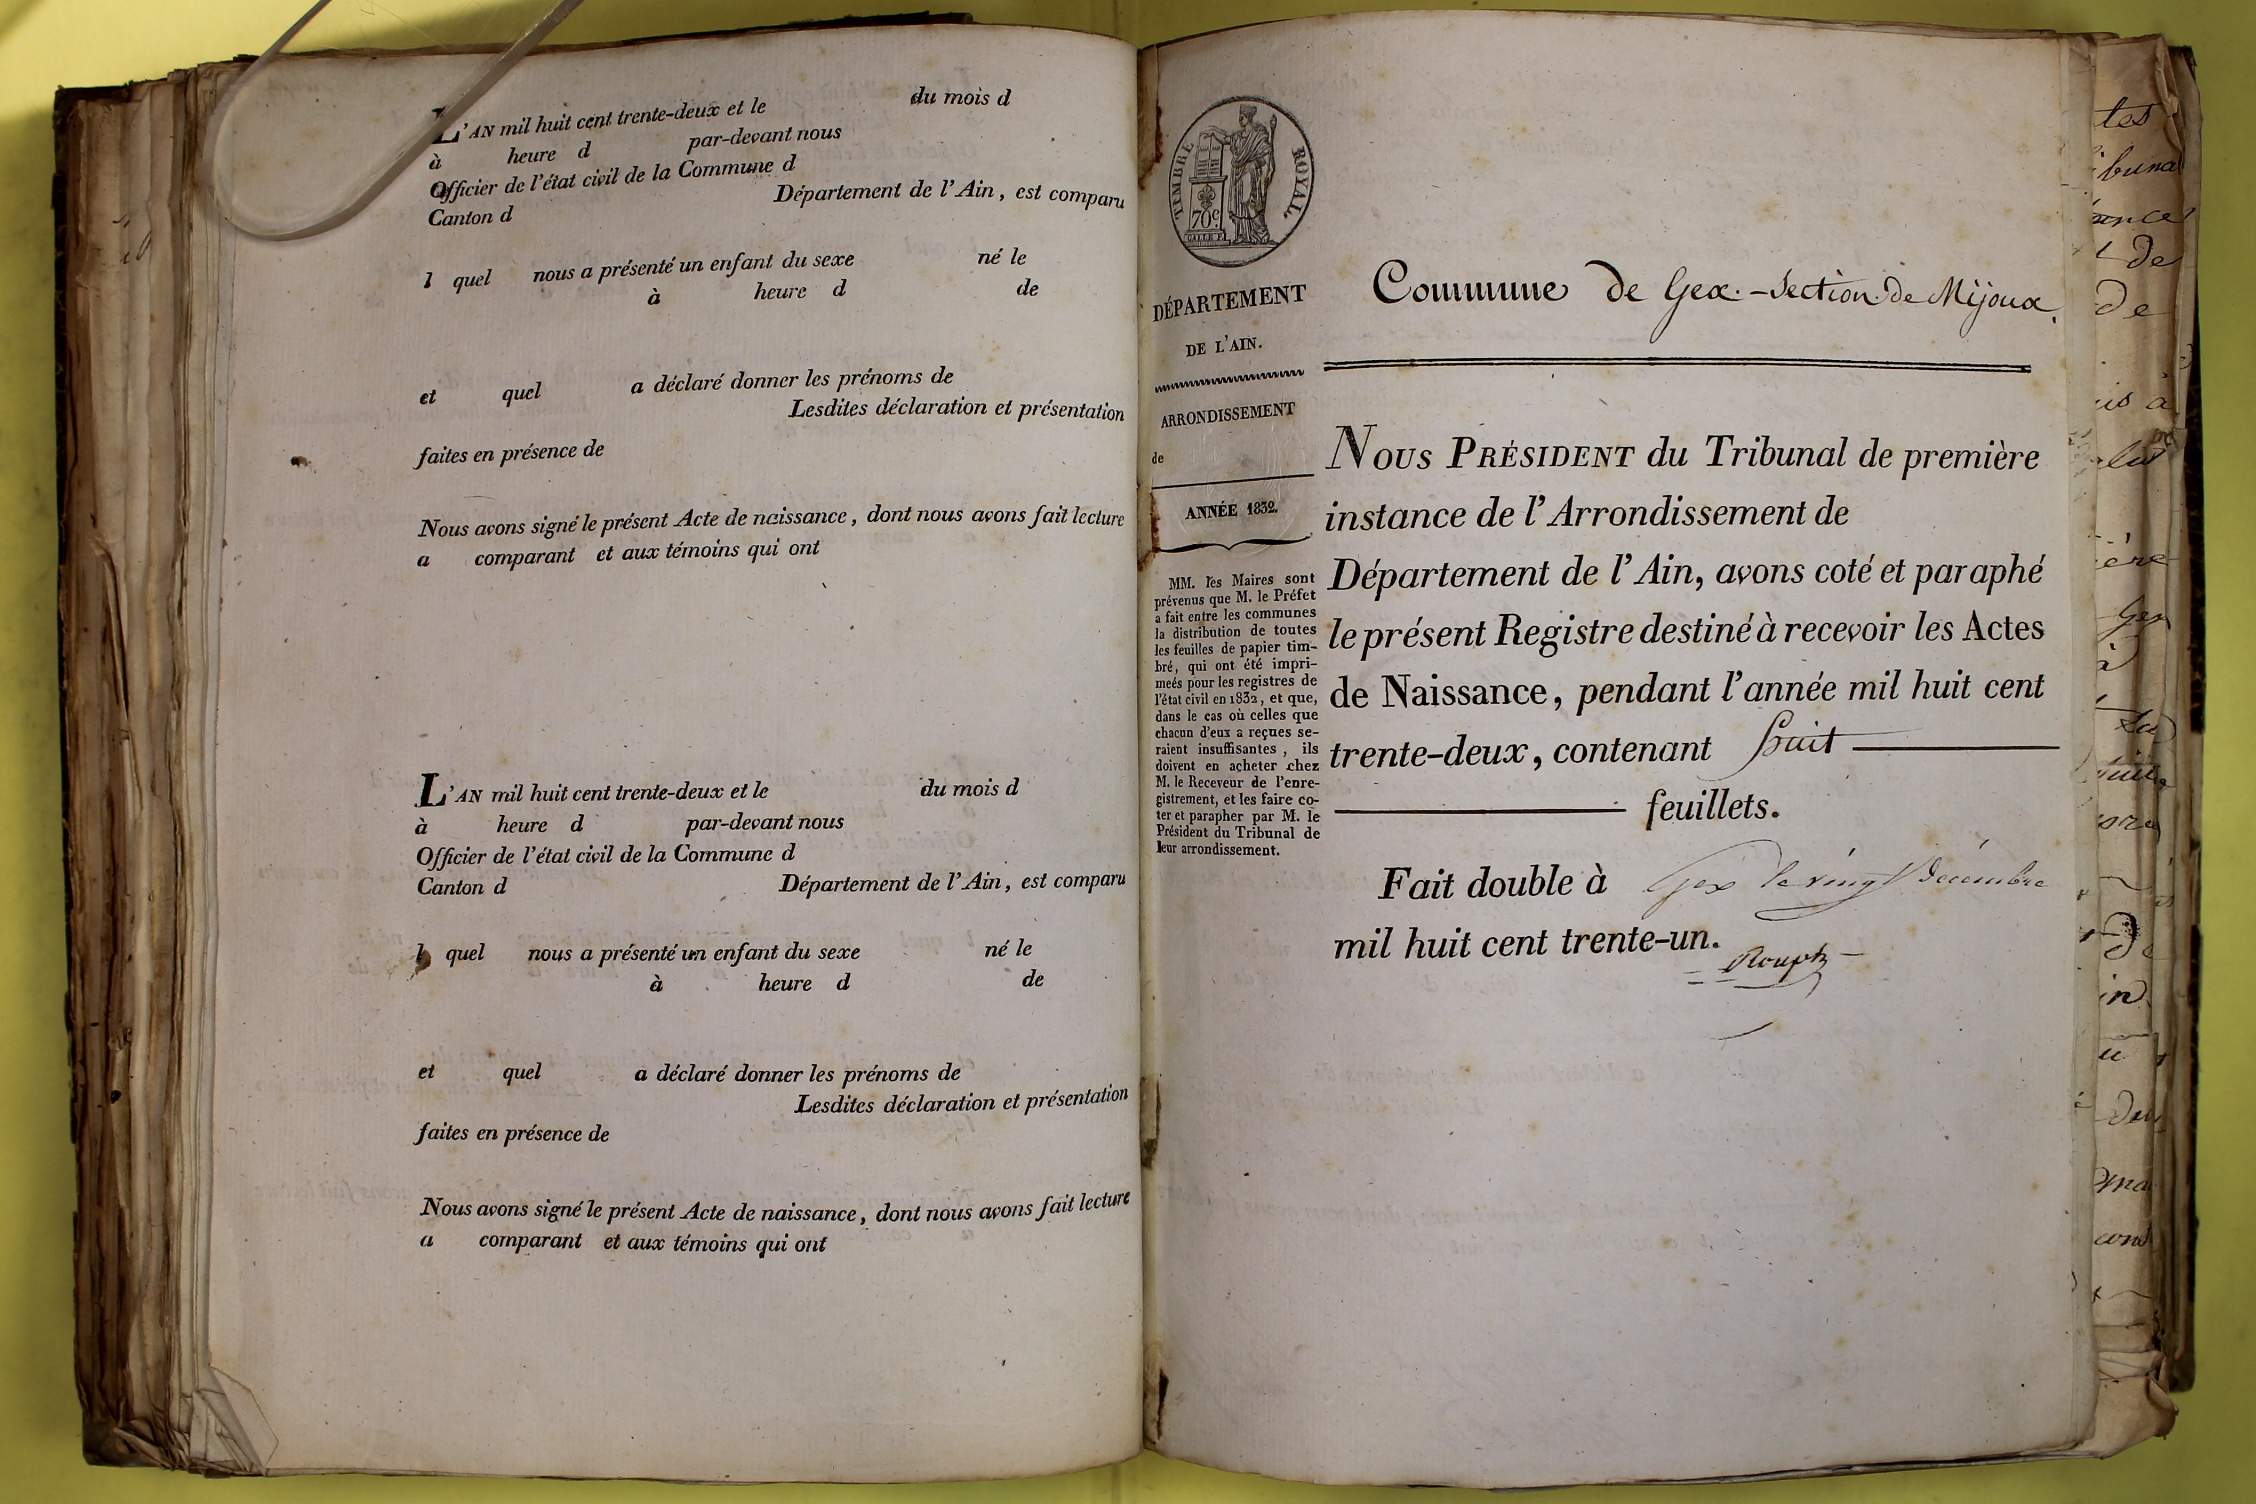 L'AN mil huit cent trente-deux et le du mois d
à heure d par-devant nous
Officier de l'état civil de la Commune d
Canton d Département de l'Ain, est comparu
l quel nous a présenté un enfant du sexe né le
à heure d de
et quel a déclaré donner les prénoms de
Lesdites déclaration et présentation
faites en présence de
Nous avons signé le présent Acte de naissance, dont nous avons fait lecture
a comparant et aux témoins qui ont
L'AN mil huit cent trente-deux et le du mois d
à heure d par-devant nous
Officier de l'état civil de la Commune d
Canton d Département de l'Ain, est comparu
l quel nous a présenté un enfant du sexe né le
à heure d de
et quel a déclaré donner les prénoms de
Lesdites déclaration et présentation
faites en présence de
Nous avons signé le présent Acte de naissance, dont nous avons fait lecture
a comparant et aux témoins qui ont
TIMBRE ROYAL
70 c
DÉPARTEMENT
DE L'AIN.
ARRONDISSEMENT
de
ANNÉE 1832.
MM. les Maires sont
prévenus que M. le Préfet
a fait entre les communes
la distribution de toutes
les feuilles de papier tim-
bré, qui ont été impri-
meés pour les registres de
l'état civil en 1832, et que,
dans le cas où celles que
chacun d'eux a reçues se-
raient insuffisantes, ils
doivent en acheter chez
M. le Receveur de l'enre-
gistrement, et les faire co-
ter et parapher par M. le
Président du Tribunal de
leur arrondissement.
Commune de Gex.-Section de Mijoux.
NOUS PRÉSIDENT du Tribunal de première
instance de l'Arrondissement de
Département de l'Ain, avons coté et paraphé
le présent Registre destiné à recevoir les Actes
de Naissance, pendant l'année mil huit cent
trente-deux, contenant huit
feuillets.
Fait double à Gex le vingt décembre
mil huit cent trente-un.